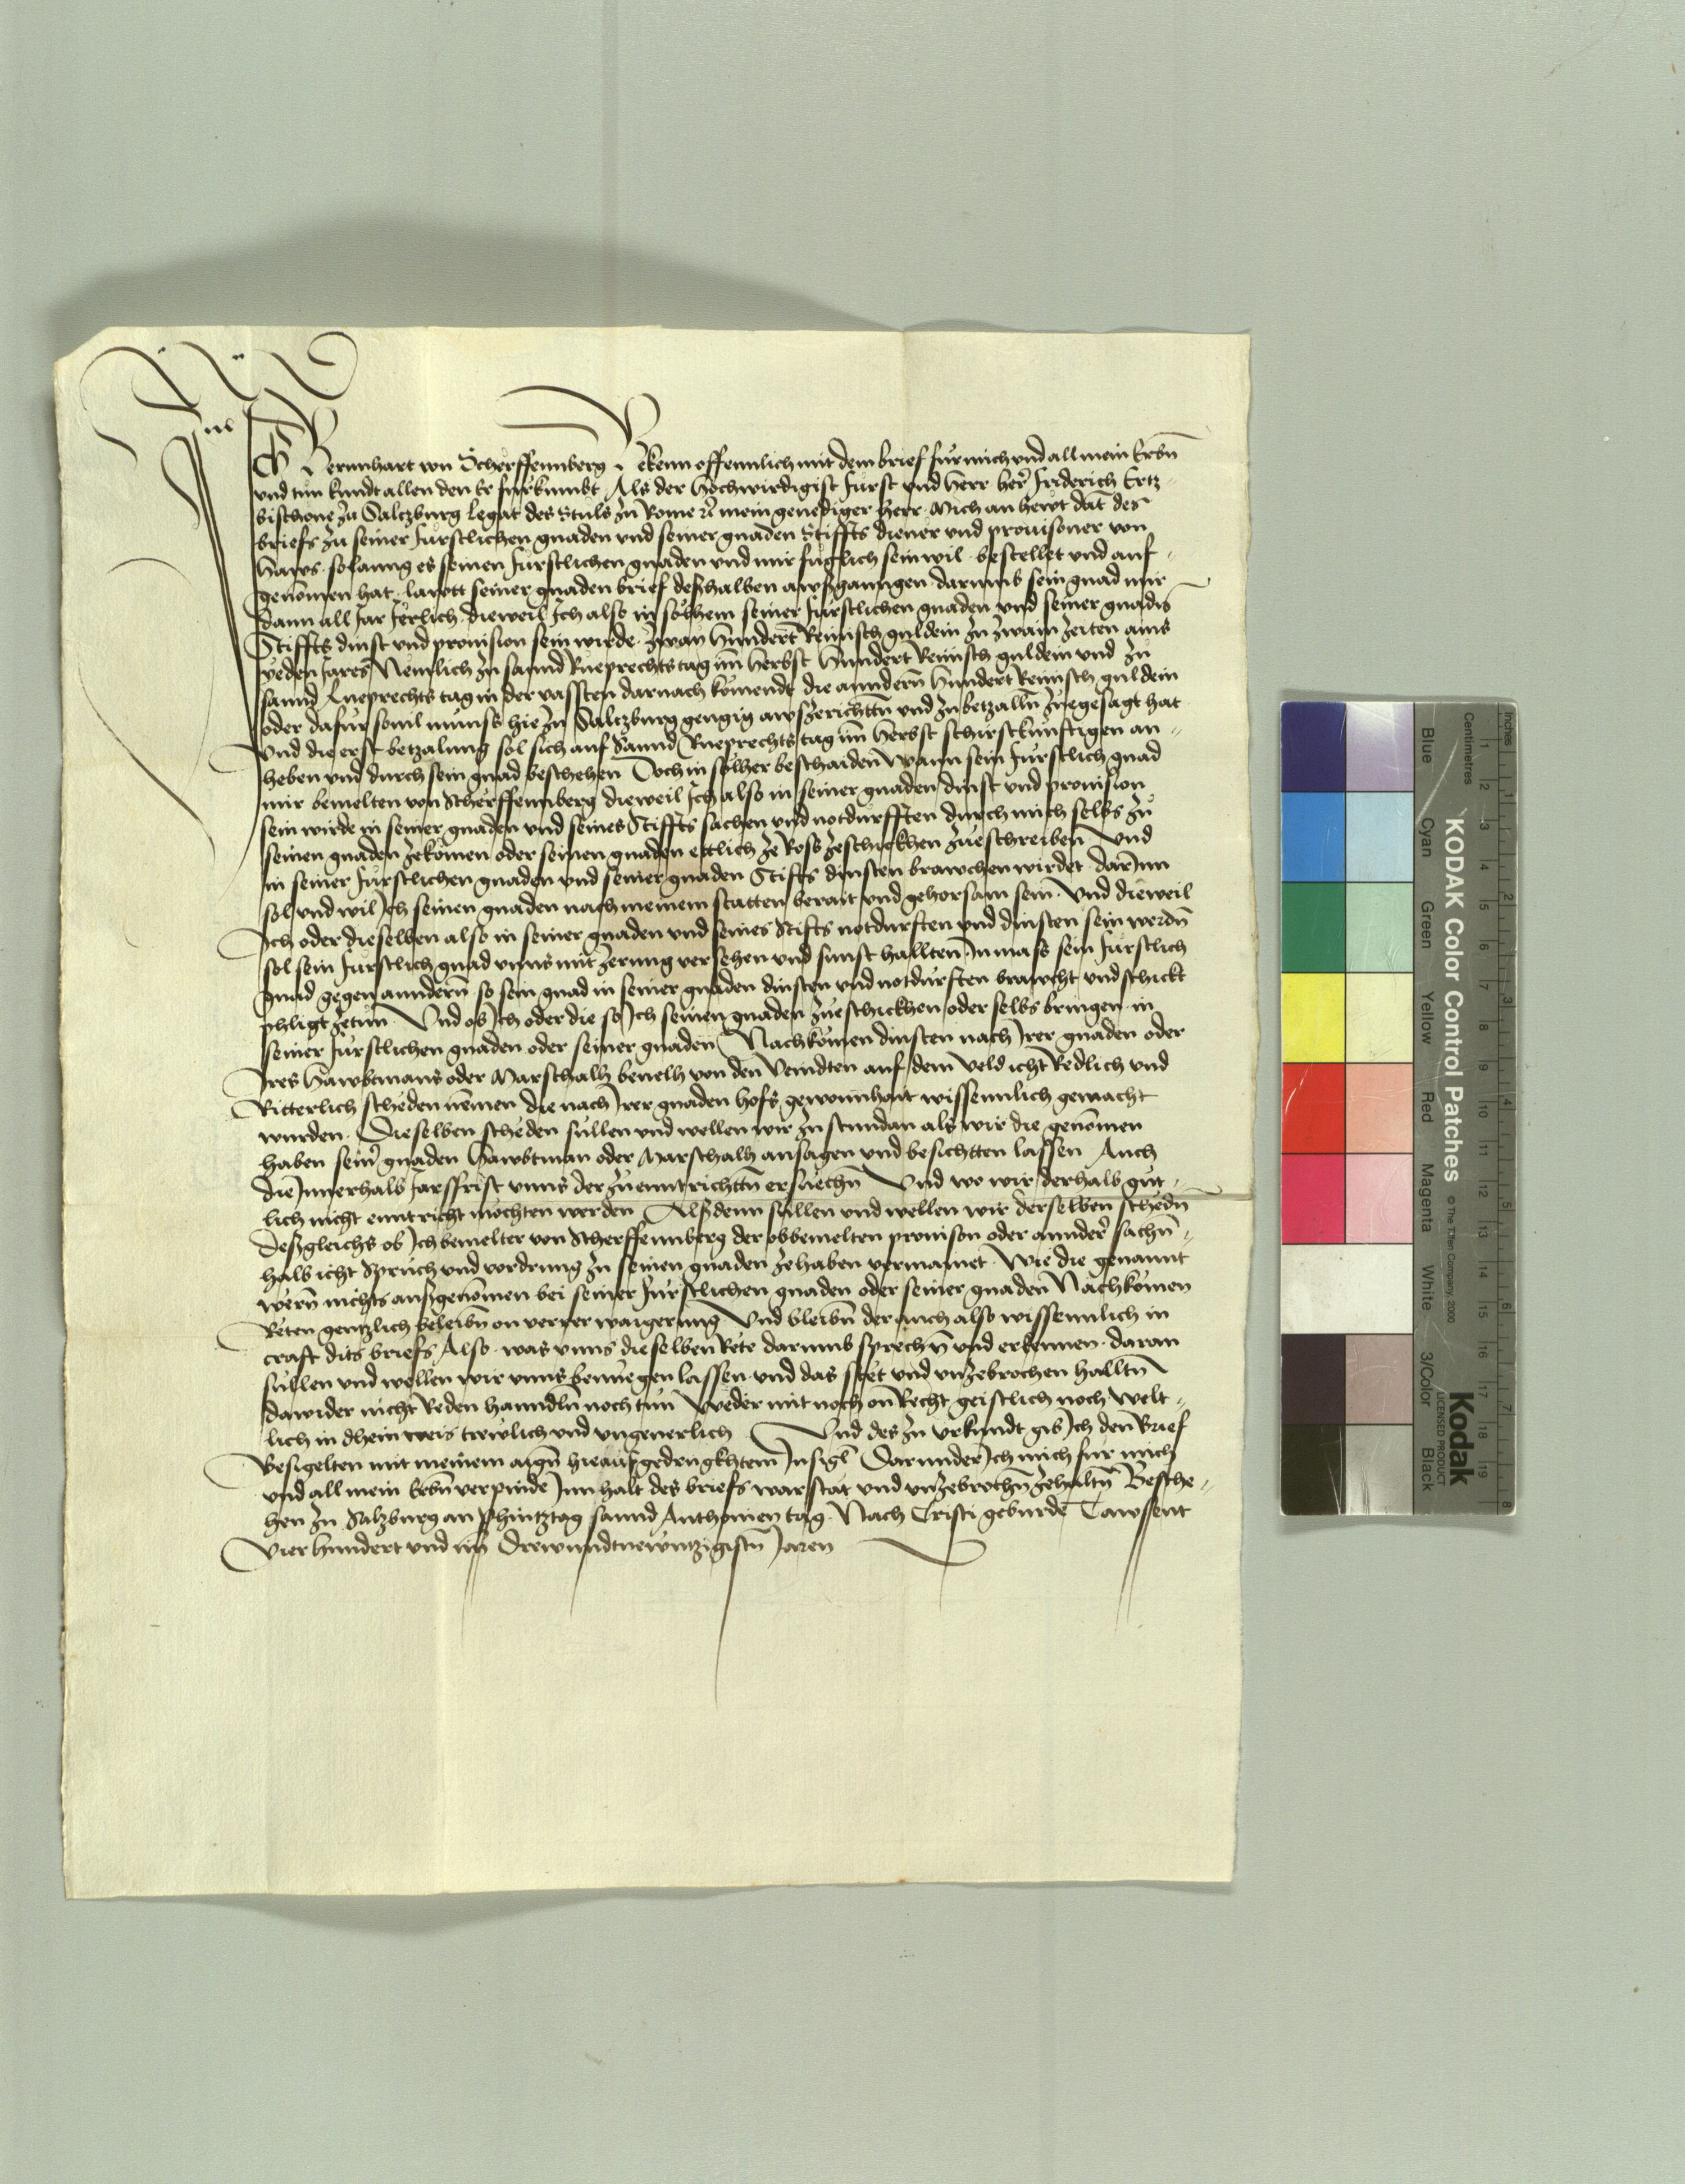 Ich Bernnhart von Scherffennberg Bekenn offennlich mit dem brief fur mich und all mein Erbñ
und tun kundt allen den Er furkumbt. Als der Hochwirdigist Furst und Herr her Friderich Ertz-
bischove zu Saltzburg Legat des Stuls zu Rome etc mein genediger Herr. Mich an hewt dat des
briefs zu seiner Furstlichen gnaden und seiner gnaden Stiffts diener und provisoner von
Haws. solanng es seinen Furstlichen gnaden und mir fuglich sein wil. bestellet und auf-
genomen hat. lawtt seiner gnaden brief deßhalben awßganngen. darumb sein gnad mir
dann all Jar Jerlich. dieweil Ich also in solhem seiner Furstlichen gnaden und seiner gnadn
Stiffts dinst und provision sein wirde. zway Hundert Reinisch guldein zu zwain zeiten ains
yeden Jares Nemlich zu sannd Rueprechts tag im Herbst Hundert Reinisch guldein und zu
sannd Rueprechts tag in der vassten darnach komendt die anndern Hundert Reinisch guldein
oder dafur sovil munss hie zu Saltzburg genngig awszerichttñ und zubetzallñ zuegesagt hat
Und die erst betzalung sol sich auf Sannd Rueprechts tag im Herbst schirstkunftigen an-
heben und durch sein gnad beschehen Doch in solher beschaiden Wann sein Furstlich gnad
mir bemelten von Scherffennberg dieweil Ich also in seiner gnaden dinst und provision
sein wirde in seiner gnaden und seines Stiffts sachen und notdurfften durch mich selbs zu
seinen gnaden zekomen oder seinen gnaden ettlich ze Ross zeschickhen zueschreiben Und
in seiner Furstlichen gnaden und seiner gnaden Stifts dinsten brawchen wirdet. darInn
sol und wil Ich seinen gnaden nach meinem statten berait und gehorsam sein. Und dieweil
Ich oder dieselben also in seiner gnaden und seines Stifts notdurften und dinsten sein werdñ
sol sein Furstlich gnad unns mit zerung versehen und sunst hallten Inmass sein Furstlich
gnad gegen anndern so sein gnad in seiner gnaden dinsten und notdurften brawcht und schickt
phligt zetun. Und ob Ich oder die so Ich seinen gnaden zueschickhen oder selbs bringen. in
seiner Furstlichen gnaden oder seiner gnaden Nachkomen dinsten nach Irer gnaden oder
Ires Hawbtmans oder Marschalh bevelh von den Veindten auf dem veld icht Redlich und
Ritterlich scheden nemen die nach Irer gnaden hofs gewonnhait wissennlich gemacht
wurden. Dieselben scheden sullen und wellen wir zu stundan als wir die genomen
haben seiner gnaden Hawbtman oder Marschalh ansagen und besichtten lassen Auch
die Innerhalb Jarssfrist unns der zu enntrichttñ ersuechñ Und wo wir derhalb gut-
lich nicht enntricht mochten werden Alßdenn sullen und wellen wir derselben schedñ
Deßgleichs ob Ich bemelter von Scherffennberg der obbemelten provison oder annder sachñ
halb icht Spruch und vordrung zu seinen gnaden zehaben vermainet. Wie die genannt
wern nichts außgenomen bei seiner Furstlichen gnaden oder seiner gnaden Nachkomen
Reten genntzlich beleibñ on verrer waigerung Und bleibñ der auch also wissennlich in
craft dits briefs Also. was unns dieselben Rete darumb sprechñ und erkennen. daran
sullen und wellen wir unns benuegen lassen. und das stet und unzebrochen halltñ
dawider nicht Reden hanndlñ noch tun weder mit noch on Recht geistlich noch welt-
lich in dhein weis trewlich und ungeverlich Und des zu urkundt gib Ich den Brief
Besigelten mit meinem aigñ hieauf gedrugkhtem Insigl Darunder Ich mich fur mich
und all mein Erbñ verpinde Innhalt des briefs war stat und unzebrochñ zehaltñ Besche-
hen zu Salzburg an Phintztag sannd Anthonien tag. Nach Cristi geburde Tawsent
Vierhundert und im Drewundtnewntzigistñ Jaren